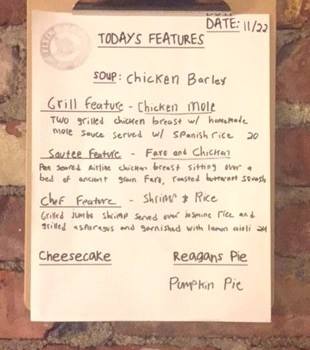 DATE: 11/22
TODAYS FEATURES
SOUP: Chicken Barley
Grill Feature - Chicken Mole
TWO grilled chicken breast w/ homemade
mole sauce served w/ Spanish rice 20
Sautee Feature - Faro and Chicken
Pan seared Airline chicken breast sitting over a
bed of ancient grain Faro, roasted butternut squash
Chef Feature - Shrimp & Rice
Grilled Jumbo shrimp served over Jasmine rice and
grilled asparagus and garnished with lemon aioli
Cheesecake Reagans Pie
Pumpkin Pie